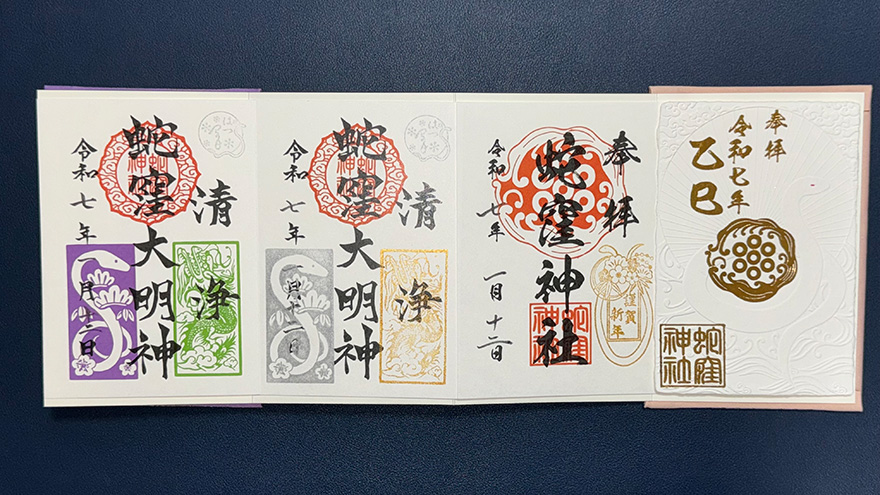 奉拝
令和七年
乙巳
蛇窪
神社
奉拝
謹賀
新年
蛇窪神社
蛇窪
神社
令和七年 一月十二日
清浄
蛇窪大明神
蛇窪
神社
令和七年 一月十二日
清浄
蛇窪大明神
蛇窪
神社
令和七年 一月十二日